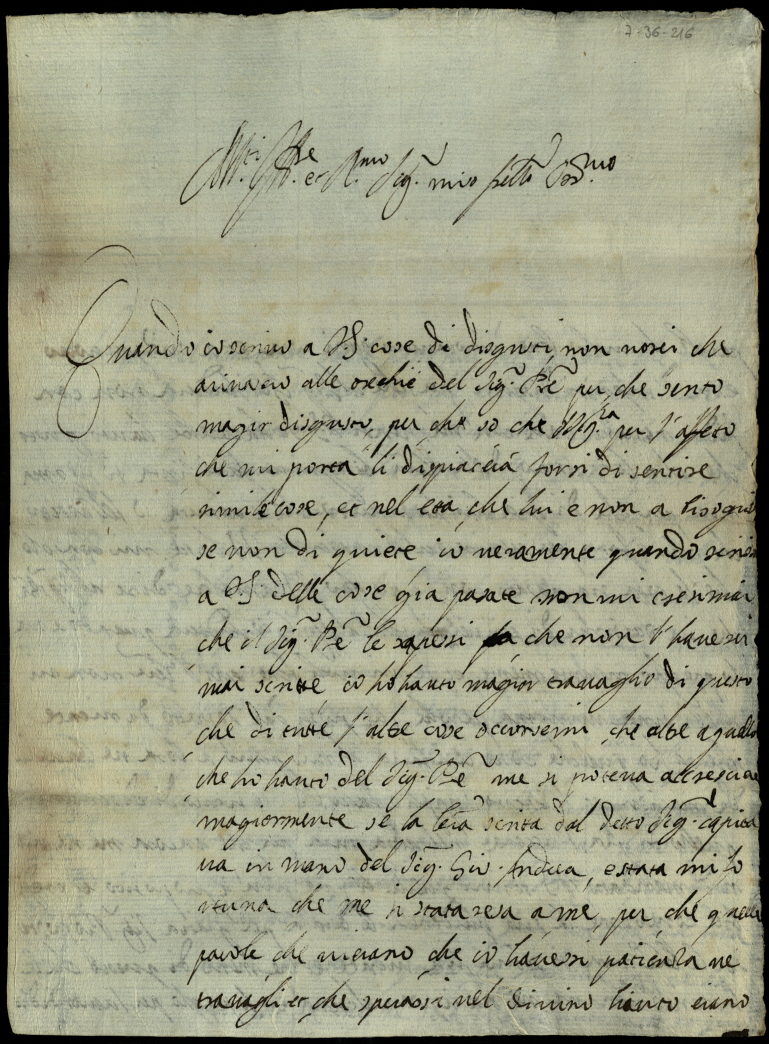 7-36-216
Ill.re et R.mo Sig.r mio
Quando io scrivo a V.S. cose di disgusti, non vorei che
arivacio alle orechie del Sig.r Pre per che sento
magir disgusto, per che so che per l'affeto
che mi porta li dispiacera forsi di sentire
simile cose, et nel eta che lui e non a bisogni
se non di quiete io veramente quando scrissi
a V.S. delle cose gia pasate non mi cresi mai
che il Sig.r Pre le sapessi che non l'havesi
mai scritte io ho hauto magior travaglio di questo
che di tutte l'altre cose occorsemi che altre a quello
che ho hauto del Sig.r Pre me si poteva acrescia
magiormente se la lra scrita dal detto Sig.r capita
va in mano del Sig.r Gio. Andrea, e stata mi fo
rtuna che me si stata resa a me, per che quelle
parole che diciano che io havessi patienza ne
travagli et che sperassi nel divino aiuto erano